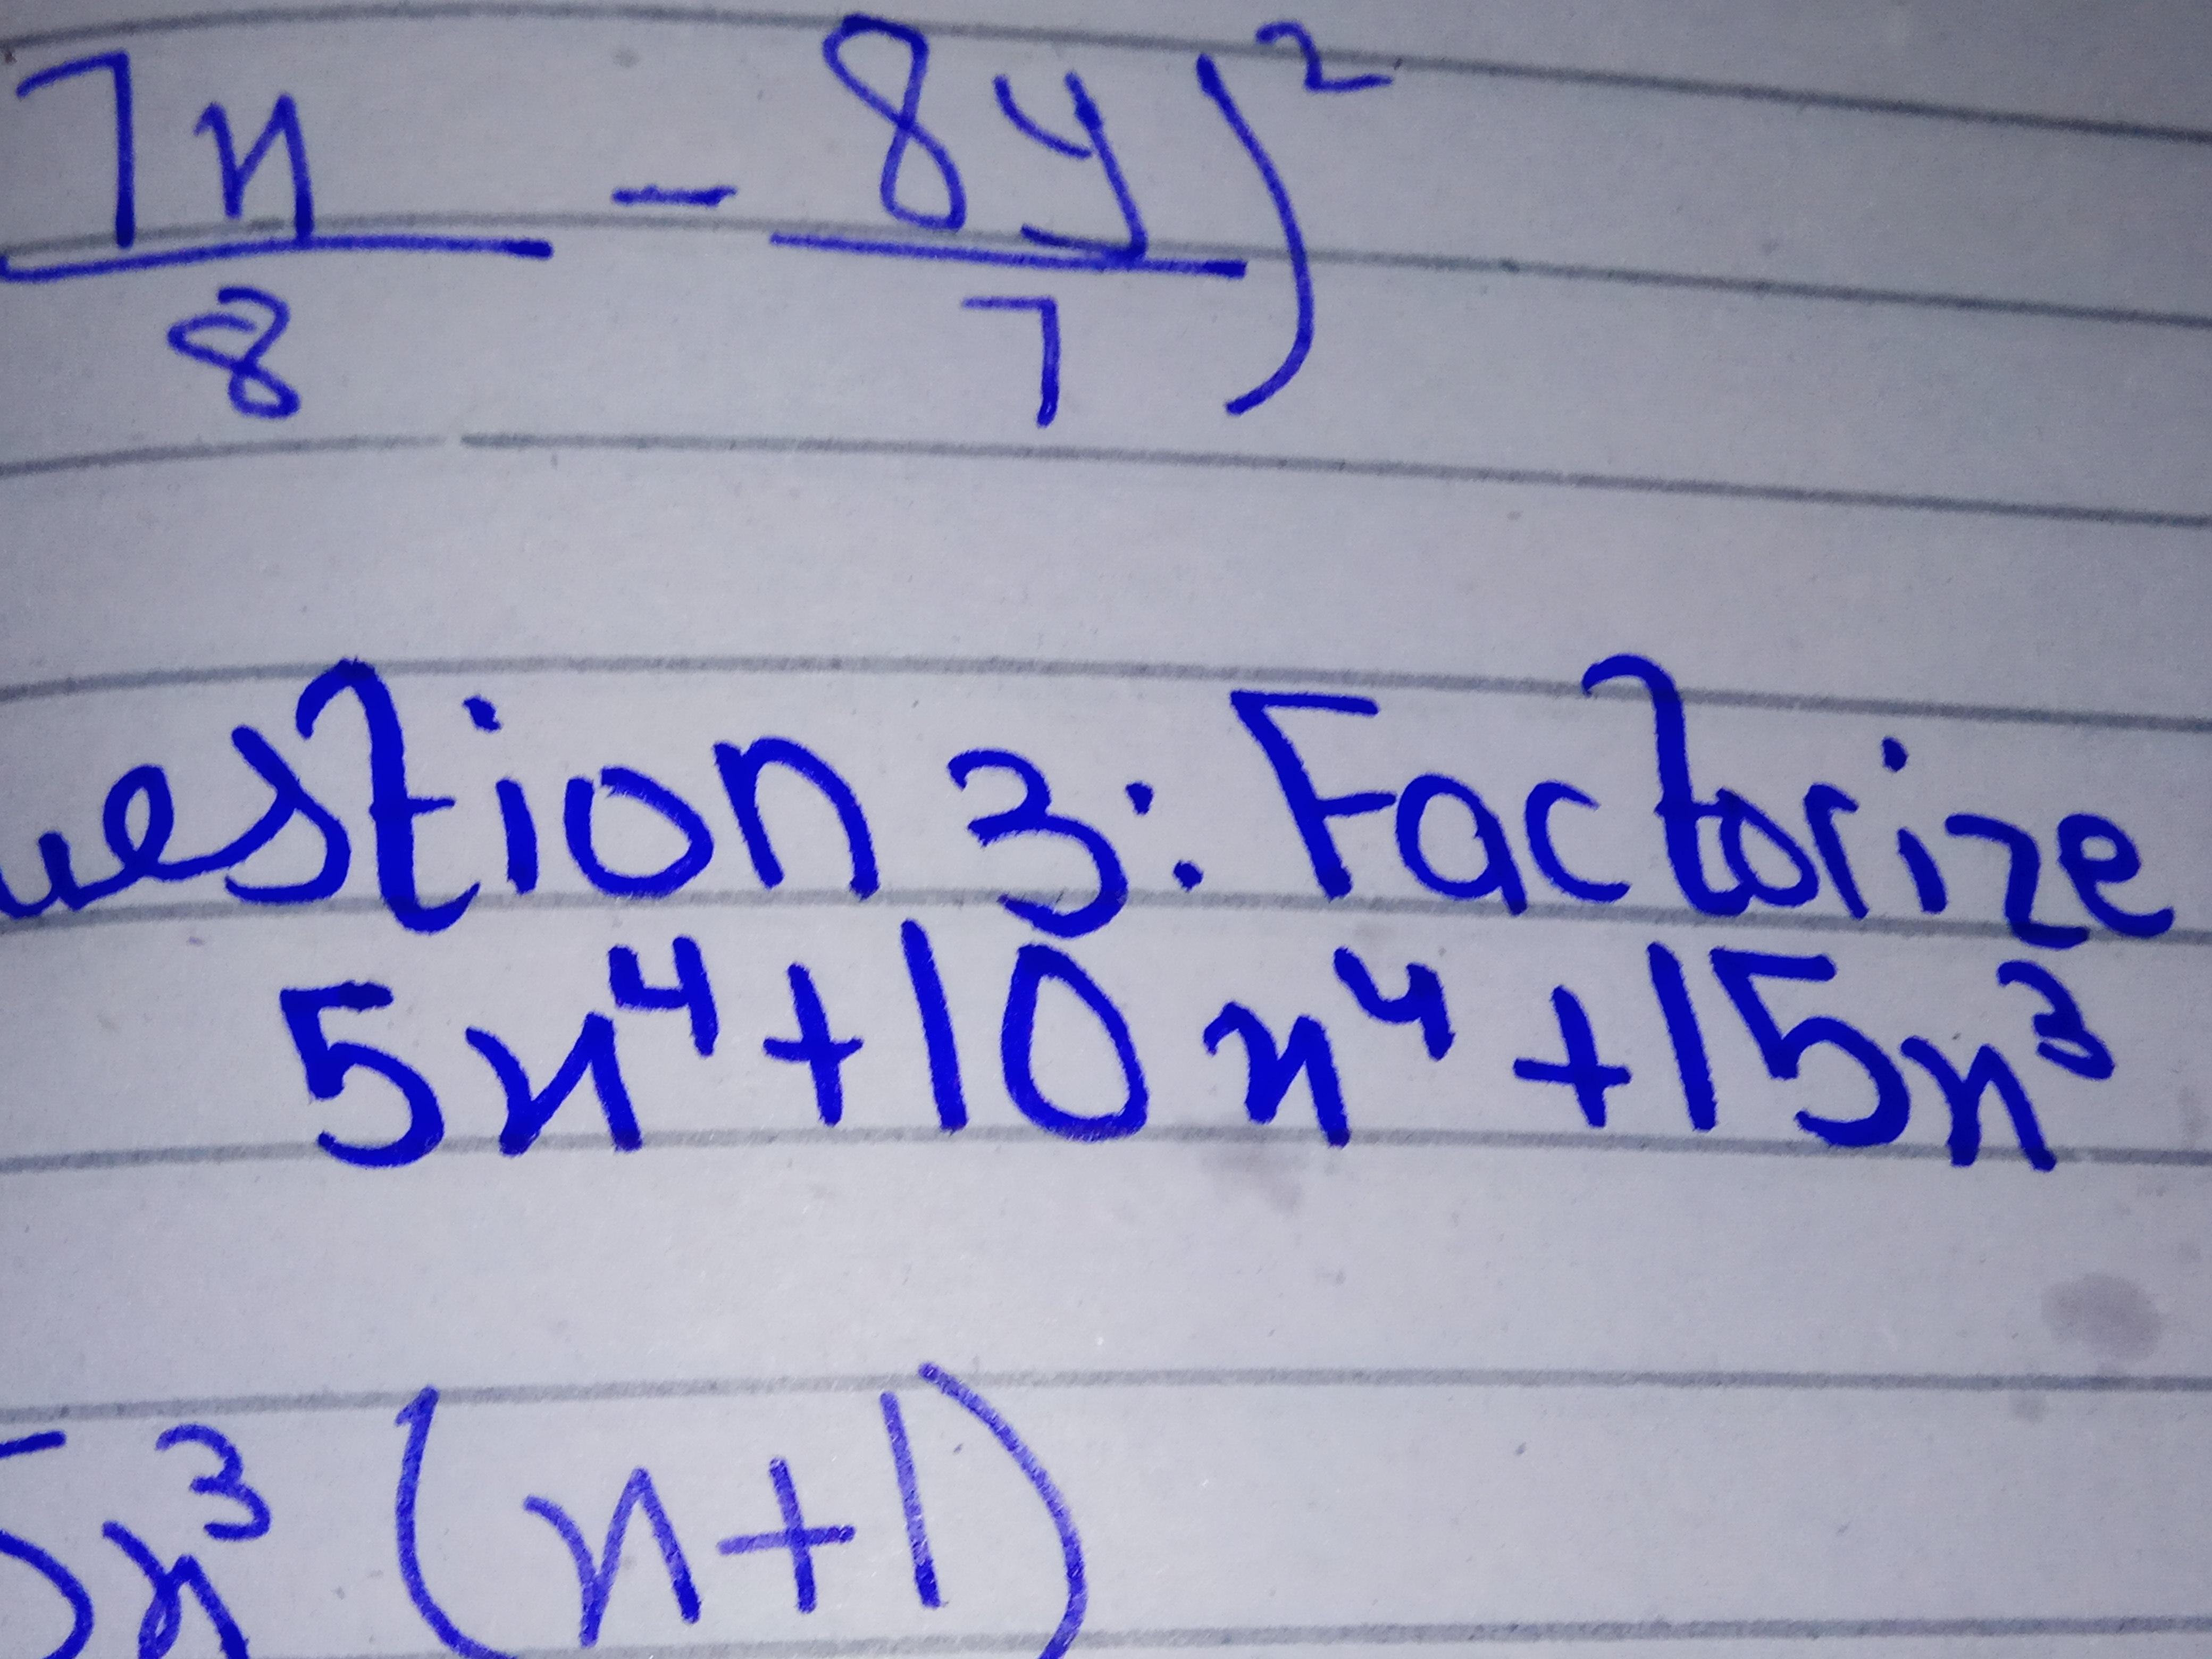 7x/8 - 8y/7)²
uestion 3: Factorize
5x⁴+10x⁴+15x³
5x³(x+1)